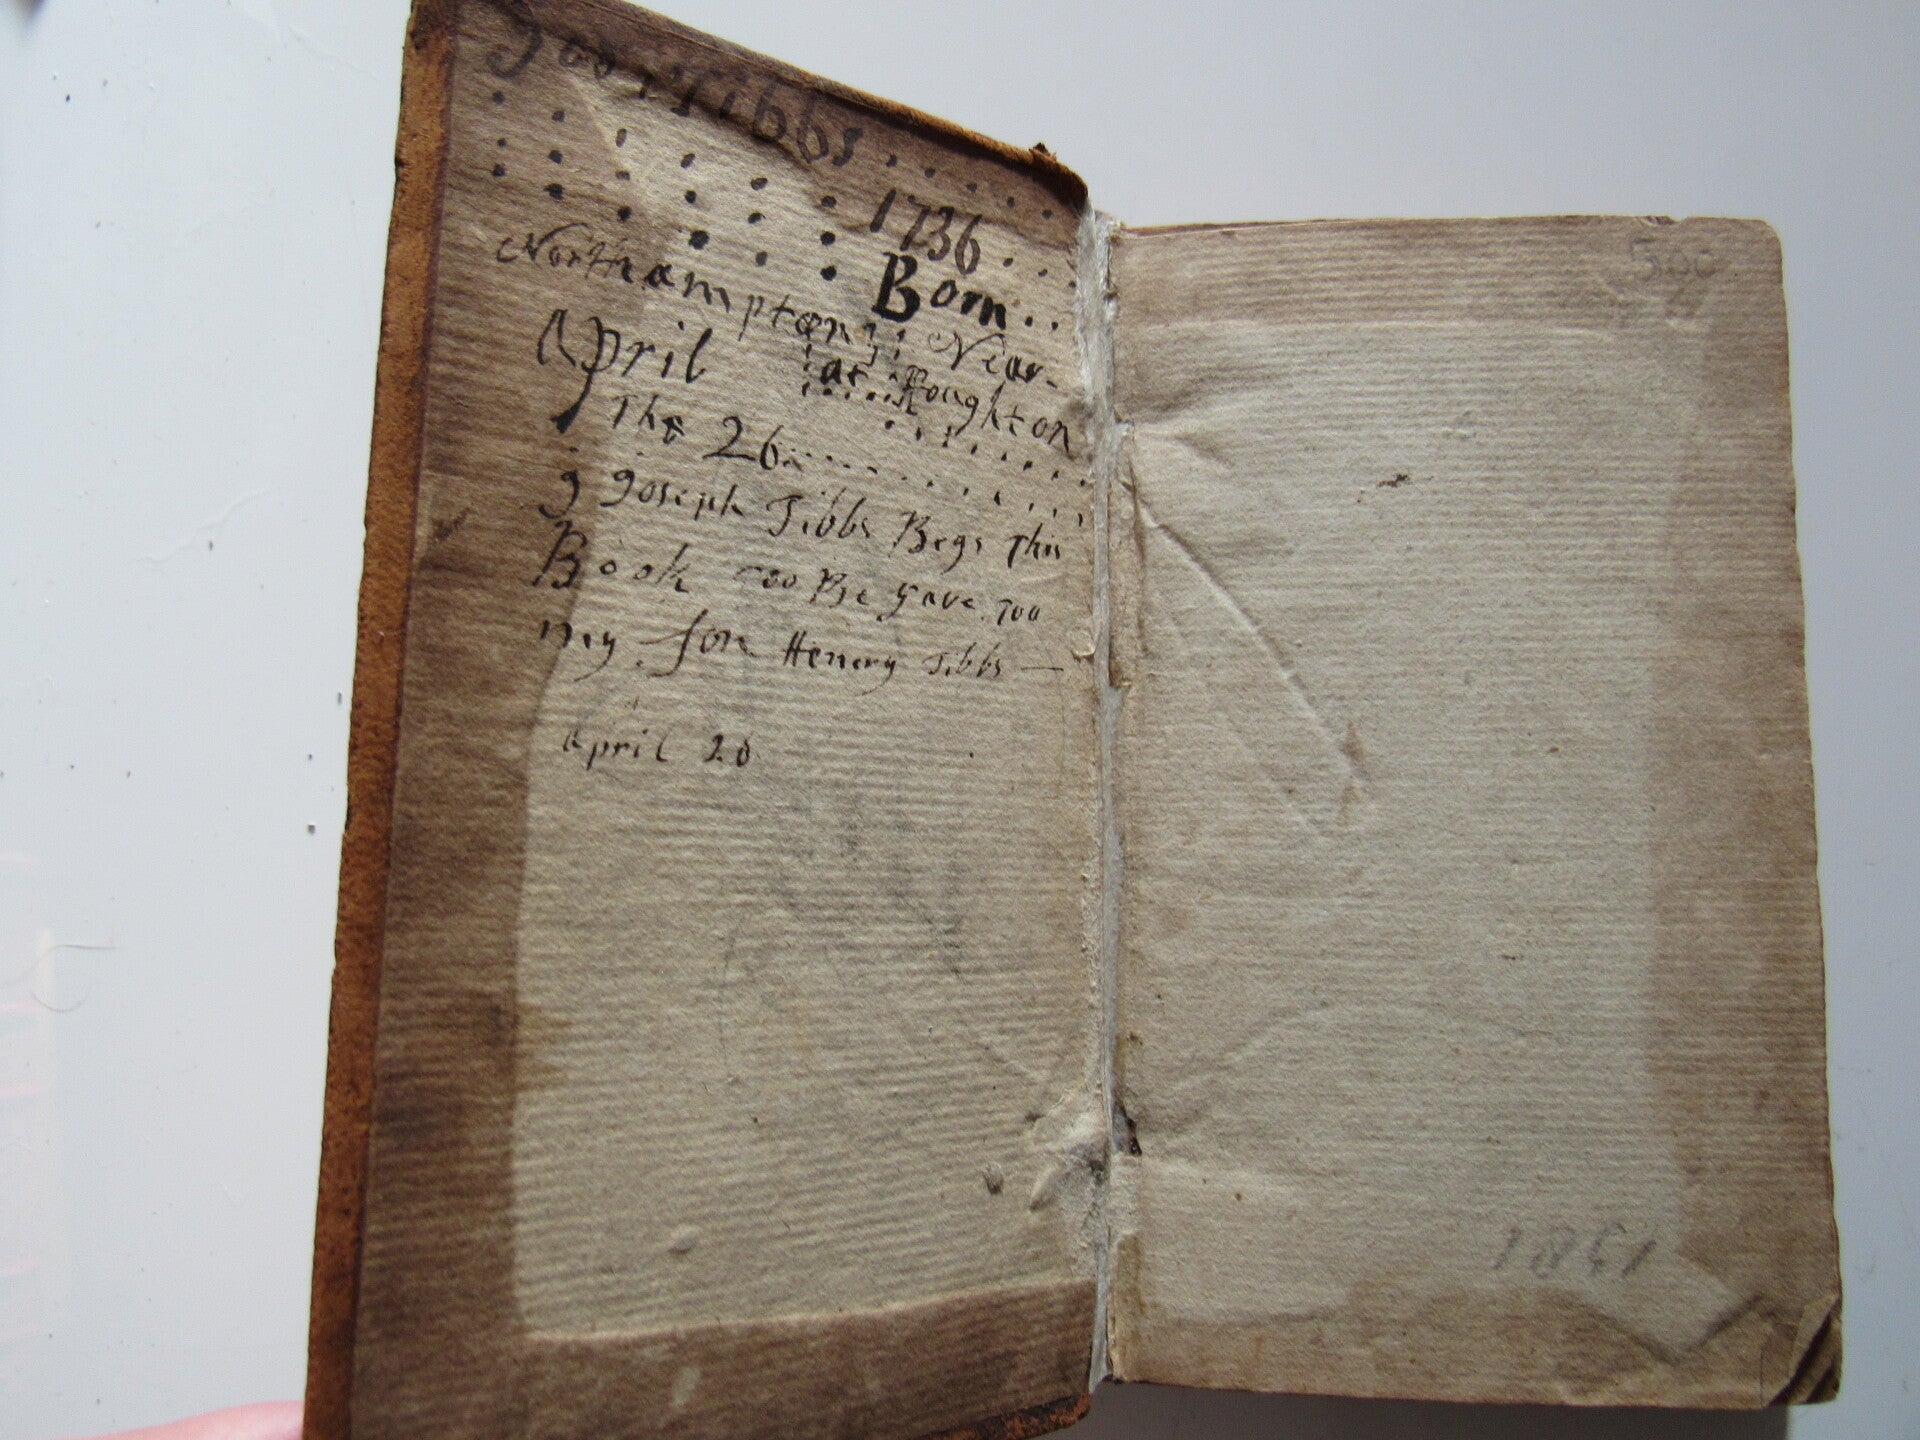 Tibbs
1736
Born
Northampton Near
April at Boughton
The 26
J Joseph Tibbs Begs This
Book too Be gave too
my son Henery Tibbs
April 20
500
1851